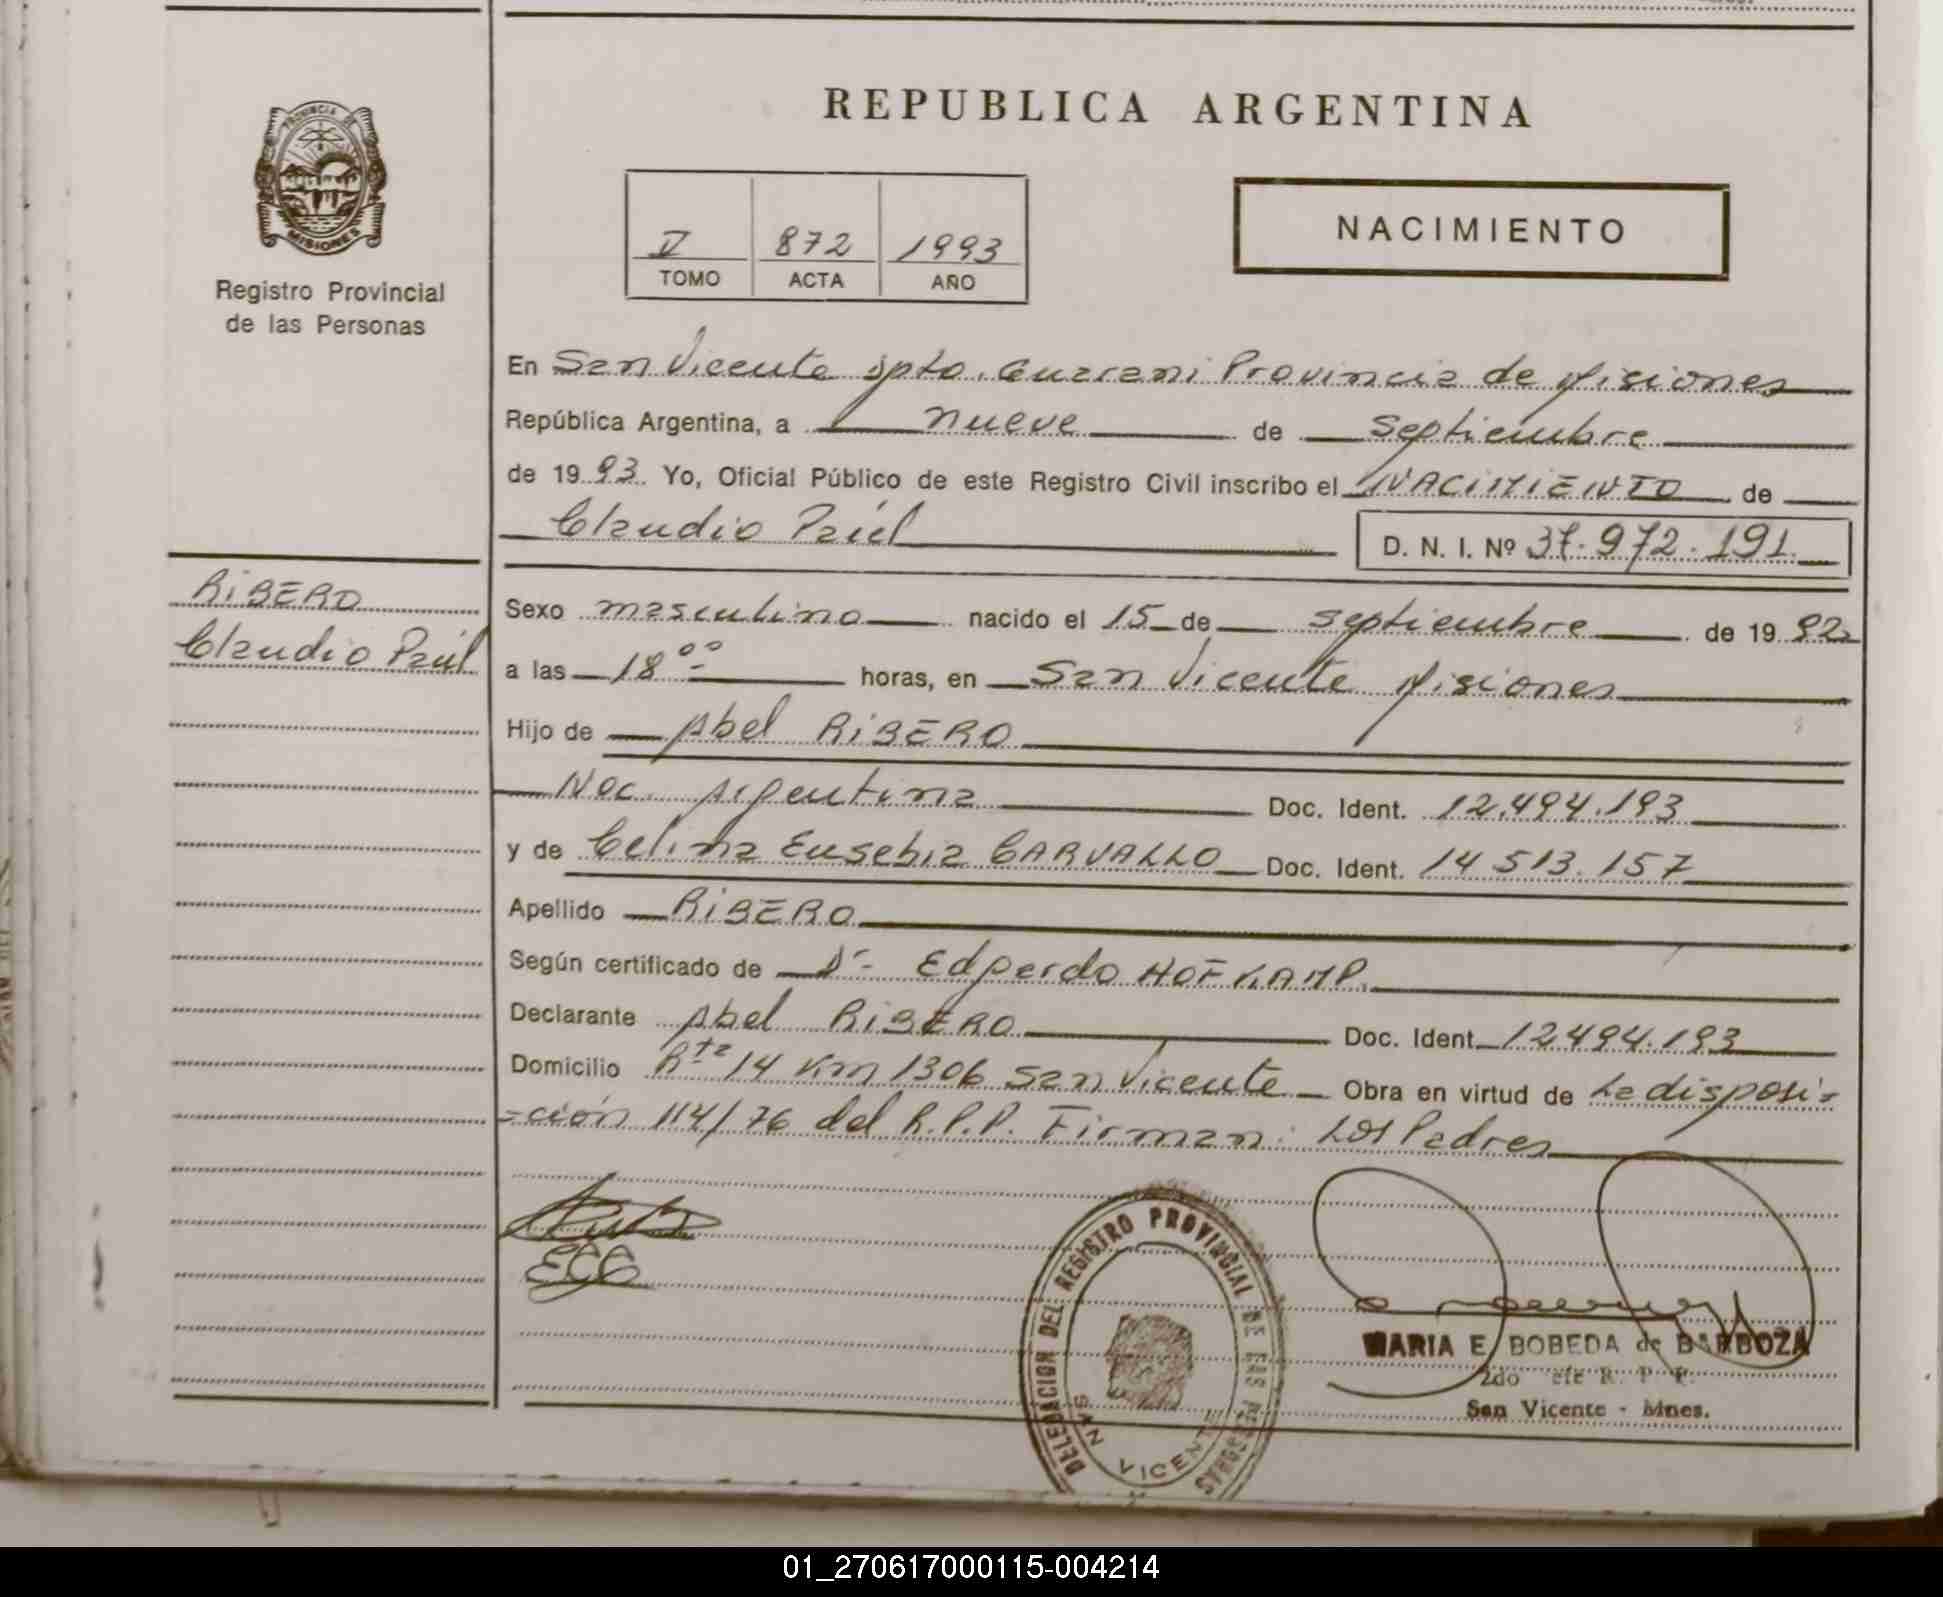 REPUBLICA ARGENTINA
PROVINCIA DE
MISIONES
Registro Provincial
de las Personas
V 872 1993
TOMO ACTA AÑO
NACIMIENTO
En San Vicente Dpto. Guarani Provincia de Misiones
República Argentina, a nueve de Septiembre
de 1993. Yo, Oficial Público de este Registro Civil inscribo el NACIMIENTO de
Claudio Raúl D. N. I. Nº 37.972.191.
RIBERO
Claudio Raúl
Sexo masculino nacido el 15 de septiembre de 1992
a las 18 ºº horas, en San Vicente Misiones
Hijo de Abel RIBERO
Nac. Argentina Doc. Ident. 12.494.193
y de Celina Eusebia CARVALLO Doc. Ident. 14 513.157
Apellido RIBERO
Según certificado de Dr. Edgardo HOFKAMP.
Declarante Abel RIBERO Doc. Ident. 12494.193
Domicilio Rta 14 Km 1306 San Vicente Obra en virtud de La disposi-
=ción 114/76 del R.P.P. Firman: Los Padres
ECC
DELEGACION DEL REGISTRO PROVINCIAL DE LAS PERSONAS
SAN VICENTE
MARIA E. BOBEDA de BARBOZA
2do R. P. P.
San Vicente - Mnes.
01_270617000115-004214